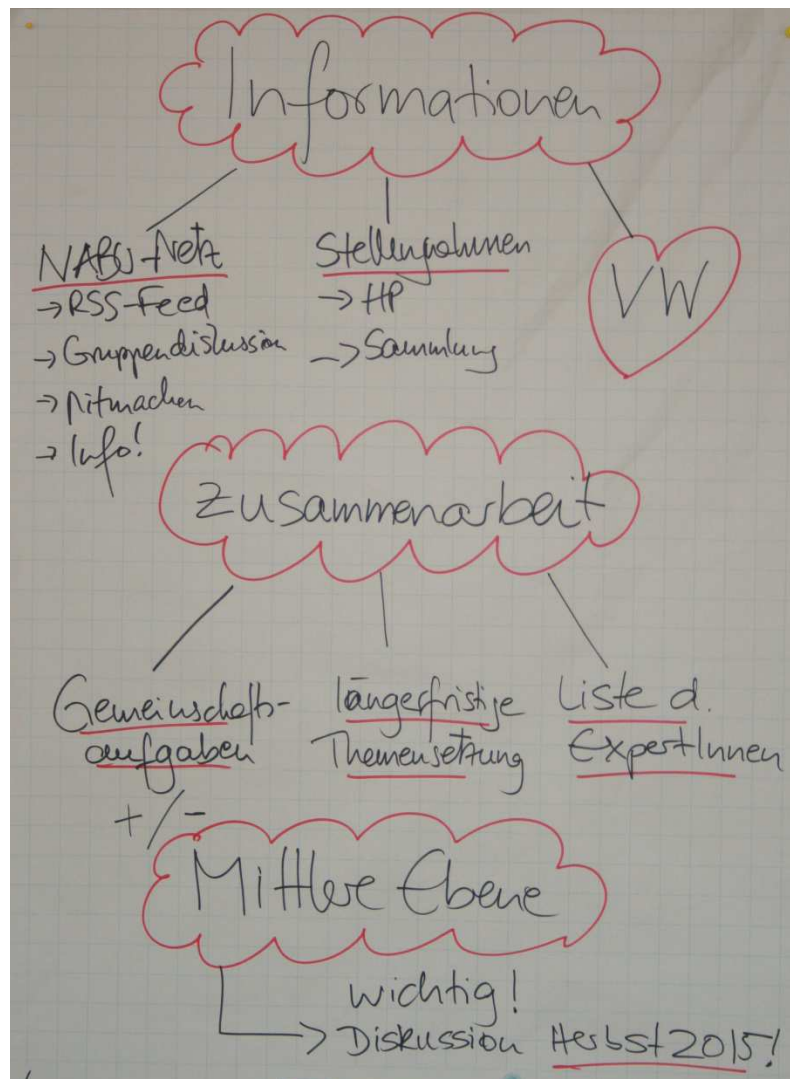 Informationen
NABU-Netz
→ RSS-Feed
→ Gruppendiskussion
→ Mitmachen
→ Info!
Stellungnahmen
→ HP
→ Sammlung
VW
Zusammenarbeit
Gemeinschafts-
aufgaben
+/-
längerfristige
Themensetzung
Liste d.
ExpertInnen
Mittlere Ebene
wichtig!
→ Diskussion Herbst 2015!